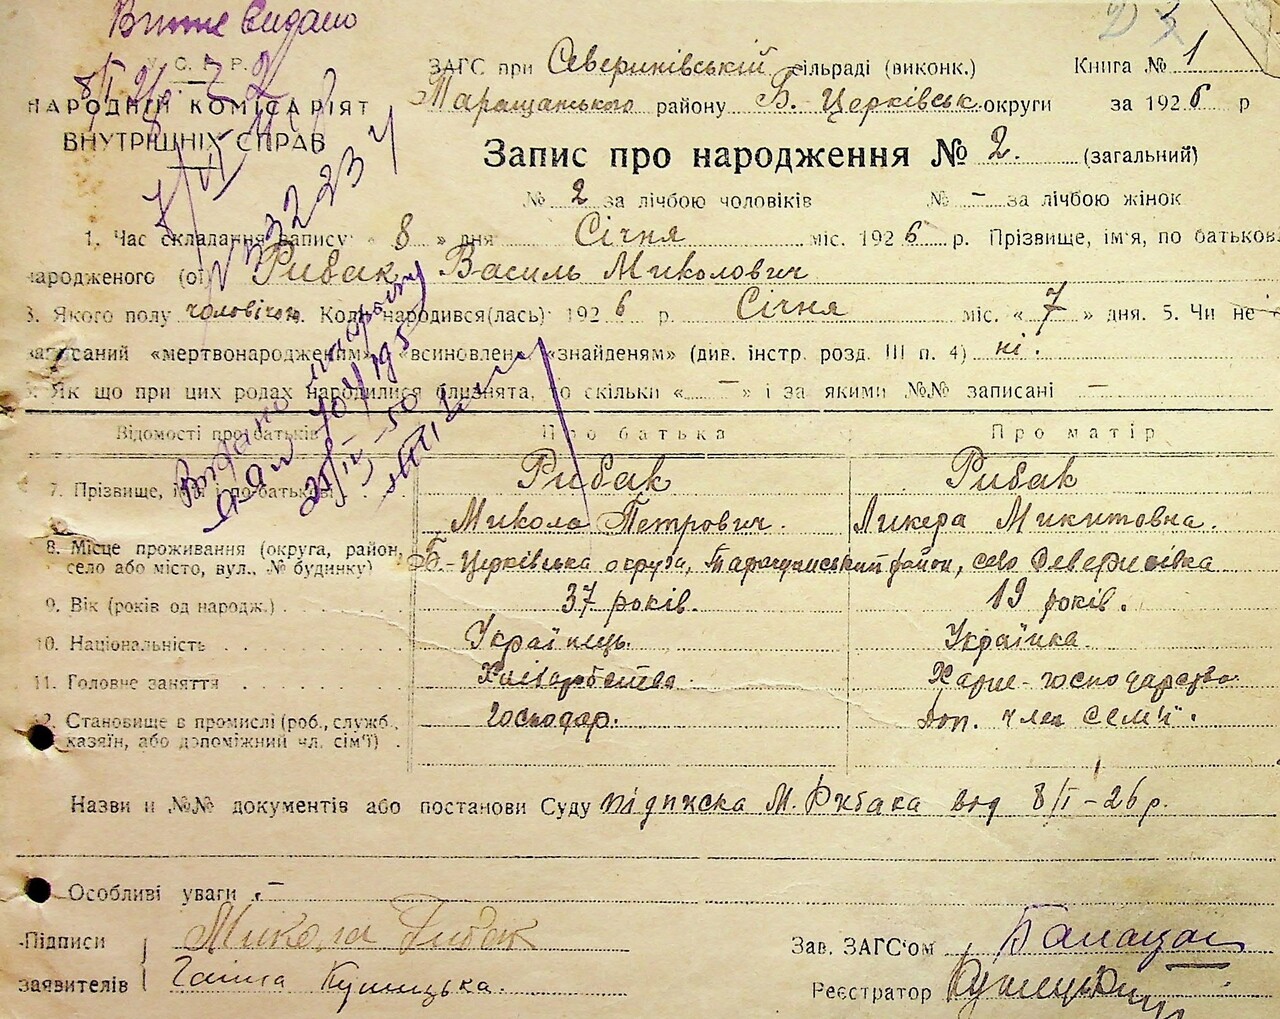 Витяг видано
У. С. Р. Р.
НАРОДНІЙ КОМІСАРІЯТ
ВНУТРІШНІХ СПРАВ
ЗАГС при Севериківській сільраді (виконк.) Книга № 1
Таращанського району Б. Церківськ. округи за 1926 р
Запис про народження № 2. (загальний)
№ 2 за лічбою чоловіків № – за лічбою жінок
1. Час складання запису « 8 » дня Січня міс. 1926 р. Прізвище, ім'я, по батькові
народженого (ої) Рибак Василь Миколович
3. Якого полу чоловічого. Коли народився(лась) 1926 р. Січня міс. « 7 » дня. 5. Чи не є
записаний «мертвонародженим» «всиновлене» «знайденям» (див. інстр. розд. III п. 4) ні.
6. Як що при цих родах народилися близнята, то скільки « – » і за якими №№ записані –
Відомості про батьків Про батька Про матір
7. Прізвище, ім'я і по-батькові Рибак Рибак
Микола Петрович. Ликера Микитовна.
8. Місце проживання (округа, район, село або місто, вул., № будинку) Б.-Церківська округа, Таращанський район, село Севериновка
9. Вік (років од народж.) 37 років. 19 років.
10. Національність Українець. Українка.
11. Головне заняття Хліборобство. Харне-господарство
12. Становище в промислі (роб., служб., Господар. доп. член сем'ї.
хазяїн, або допоміжний чл. сім'ї)
Назви и №№ документів або постанови Суду підписка М. Рибака від 8/I–26 р.
Особливі уваги –
Підписи Микола Рибак Зав. ЗАГС'ом
заявителів Ганна Кушицька. Реєстратор